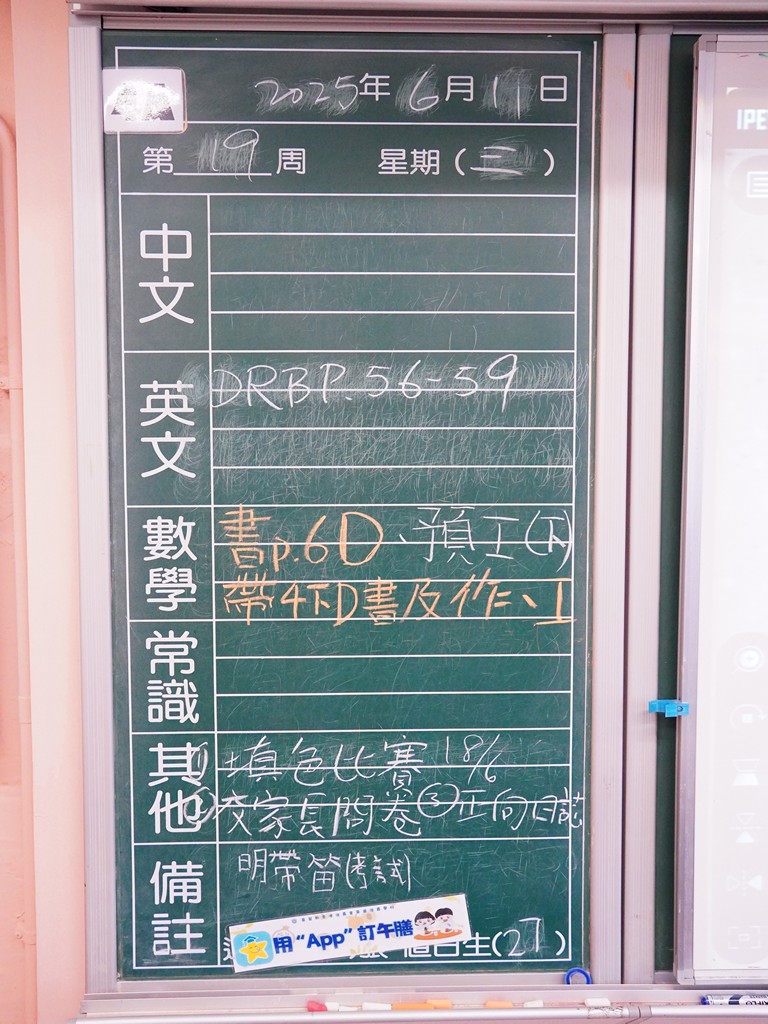 2025年6月11日
第19周 星期(三)
中文
英文 DRB P.56-59
數學 書p.6D、預工(下)
帶4下D書及作、工
常識
其他 ① 填色比賽 18/6
② 交家長問卷 ③ 正向日誌
備註 明帶笛(考試)
用“App”訂午膳
值日生(27)
IPE